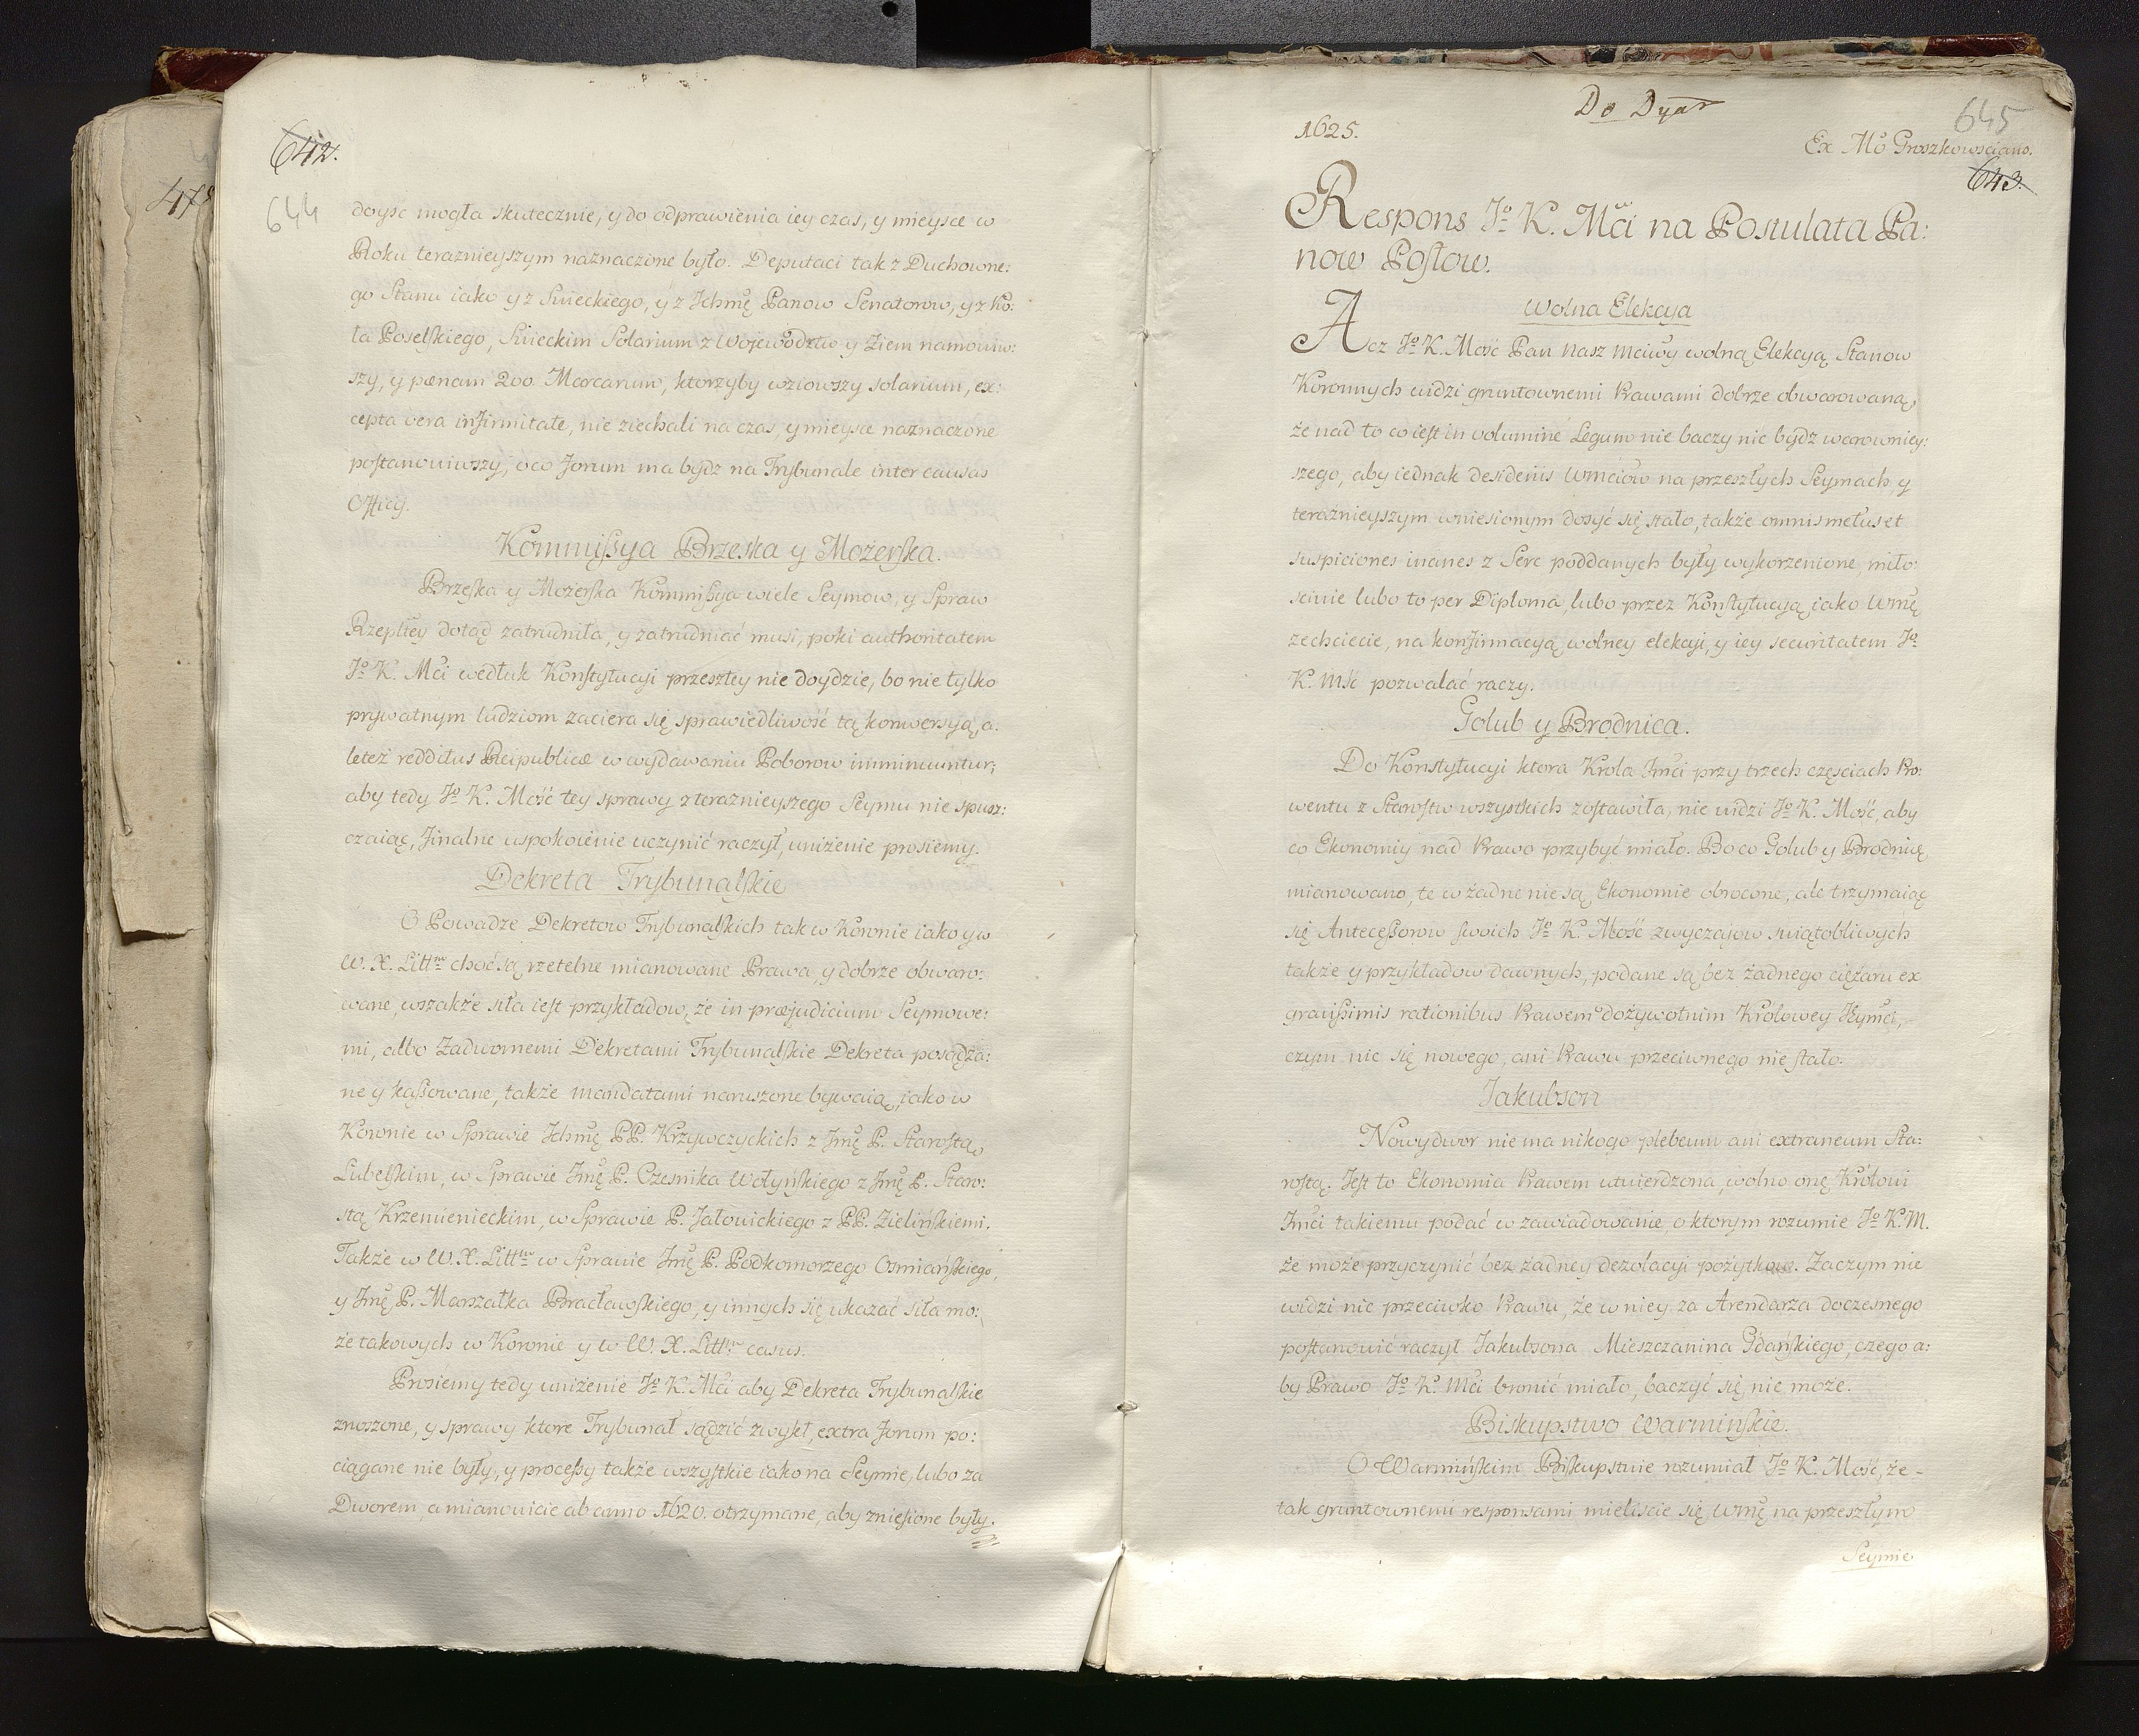 642.
644
478
doyść mogła skutecznie, y do odprawienia iey czas, y mieysce w
Roku teraznieyszym naznaczone było. Deputaci tak z Duchowne:
go Stanu iako y z Swieckiego, y z Ichmę Panow Senatorow, y z Ko:
ła Poselskiego, Swieckim Solarium z Wojewodztw y Ziem namowiw:
szy, y pœnam 200. Marcarum, ktorzyby wziowszy solarium, ex:
cepta vera infirmitate, nie ziechali na czas, y mieysce naznaczone
postanowiwszy, o co forum ma bydz na Trybunale inter causas
Officij.
Kommissya Brzeska y Mozerska.
Brzeska y Mozerska Kommissya wiele Seymow, y Spraw
Rzepltey dotąd zatrudniła, y zatrudniać musi, poki authoritatem
Jo K. Mci wedłuk Konstytucyi przeszłey nie doydzie, bo nie tylko
prywatnym ludziom zaciera się sprawiedliwość tą konwersyą, a:
leteż redditus Reipublicæ w wydawaniu Poborow imminuuntur;
aby tedy Jo K. Mość tey sprawy z teraznieyszego Seymu nie spusz:
czaiąc, finalne uspokoienie uczynić raczył, uniżenie prosiemy.
Dekreta Trybunalskie
O Powadze Dekretow Trybunalskich tak w Koronie iako y w
W. X. Litt. choć są rzetelne mianowane Prawa, y dobrze obwaro:
wane, wszakże siła iest przykładow, że in præjudicium Seymowe:
mi, albo Zadwornemi Dekretami Trybunalskie Dekreta posądza:
ne y kassowane, także mandatami naruszone bywaią, iako w
Koronie w Sprawie Ichmę PP. Krzywczyckich z Jmę P. Starostą
Lubelskim, w Sprawie Jmę P. Czesnika Wołyńskiego z Jmę P. Staro:
stą Krzemienieckim, w Sprawie P. Jałowickiego z PP. Zielińskiemi.
Także w W. X. Litt. w Sprawie Jmę P. Podkomorzego Osmiańskiego,
y Jmę P. Marszałka Bracławskiego, y innych się ukazać siła mo:
że takowych w Koronie y w W. X. Litt. casus.
Prosiemy tedy uniżenie Jo K. Mci aby Dekreta Trybunalskie
znoszone, y sprawy ktore Trybunał sądzić zwykł, extra forum po:
ciągane nie były, y processy także wszystkie iako na Seymie, lubo za
Dworem, a mianowicie ab anno 1620. otrzymane, aby zniesione były.
Do Dyar
1625.
645
Ex Mo Groszkowsciano.
643.
Respons Jo K. Mci na Postulata Pa:
now Posłow.
Wolna Elekcya
Acz Jo K. Mość Pan Nasz Mciwy wolną Elekcyą Stanow
Koronnych widzi gruntownemi Prawami dobrze obwarowaną,
że nad to co iest in volumine Legum nie baczy nic bydz warowniey:
szego, aby iednak desideriis Wmciow na przeszłych Seymach y
teraznieyszym wniesionym dosyć się stało, także omnis metus et
suspiciones inanes z Serc poddanych były wykorzenione, miło:
sciwie lubo to per Diploma, lubo przez Konstytucyą, iako Wmę
zechciecie, na konfirmacyą wolney elekcyi, y iey securitatem Jo
K. Mść pozwalać raczy.
Golub y Brodnica.
Do Konstytucyi ktora Krola Jmci przy trzech częsciach Pro:
wentu z Starostw wszystkich zostawiła, nie widzi Jo K. Mość, aby
co Ekonomiy nad Prawo przybyć miało. Bo co Golub y Brodnicę
mianowano, te w żadne nie są, Ekonomie obrocone, ale trzymaiąc
się Antecessorow swoich Jo K. Mość zwyczajow swiątobliwych
także y przykładow dawnych, podane są bez żadnego ciężaru ex
gravissimis rationibus Prawem dożywotnim Królowey Jeymci,
czym nic się nowego, ani Prawu przeciwnego nie stało.
Jakubson
Nowydwor nie ma nikogo plebeum ani extraneum Sta:
rostą. Jest to Ekonomia Prawem utwierdzona, wolno onę Królowi
Jmci takiemu podać w zawiadowanie, o ktorym rozumie Jo K. M.
że może przyczynić bez żadney dezolacyi pożytkow. Zaczym nie
widzi nic przeciwko Prawu, że w niey za Arendarza doczesnego
postanowić raczył Jakubsona Mieszczanina Gdańskiego, czego a:
by Prawo Jo K. Mci bronić miało, baczyć się nie może.
Biskupstwo Warminskie.
O Warmińskim Biskupstwie rozumiał Jo K. Mość, że -
tak gruntownemi responsami mieliscie się Wmę na przeszłym
Seymie